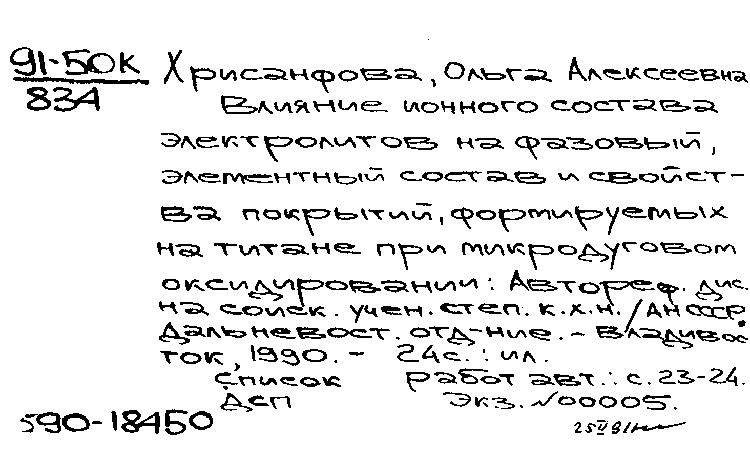 91-50К Хрисанфова, Ольга Алексеевна
83А Влияние ионного состава
электролитов на фазовый,
элементный состав и свойст-
ва покрытий, формируемых
на титане при микродуговом
оксидировании: Автореф. дис.
на соиск. учен. степ. к.х.н. / АН СССР.
Дальневост. отд-ние. - Владивос
ток, 1990. - 24с. : ил.
Список работ авт.: с. 23-24.
ДСП Экз. №00005.
590-18450